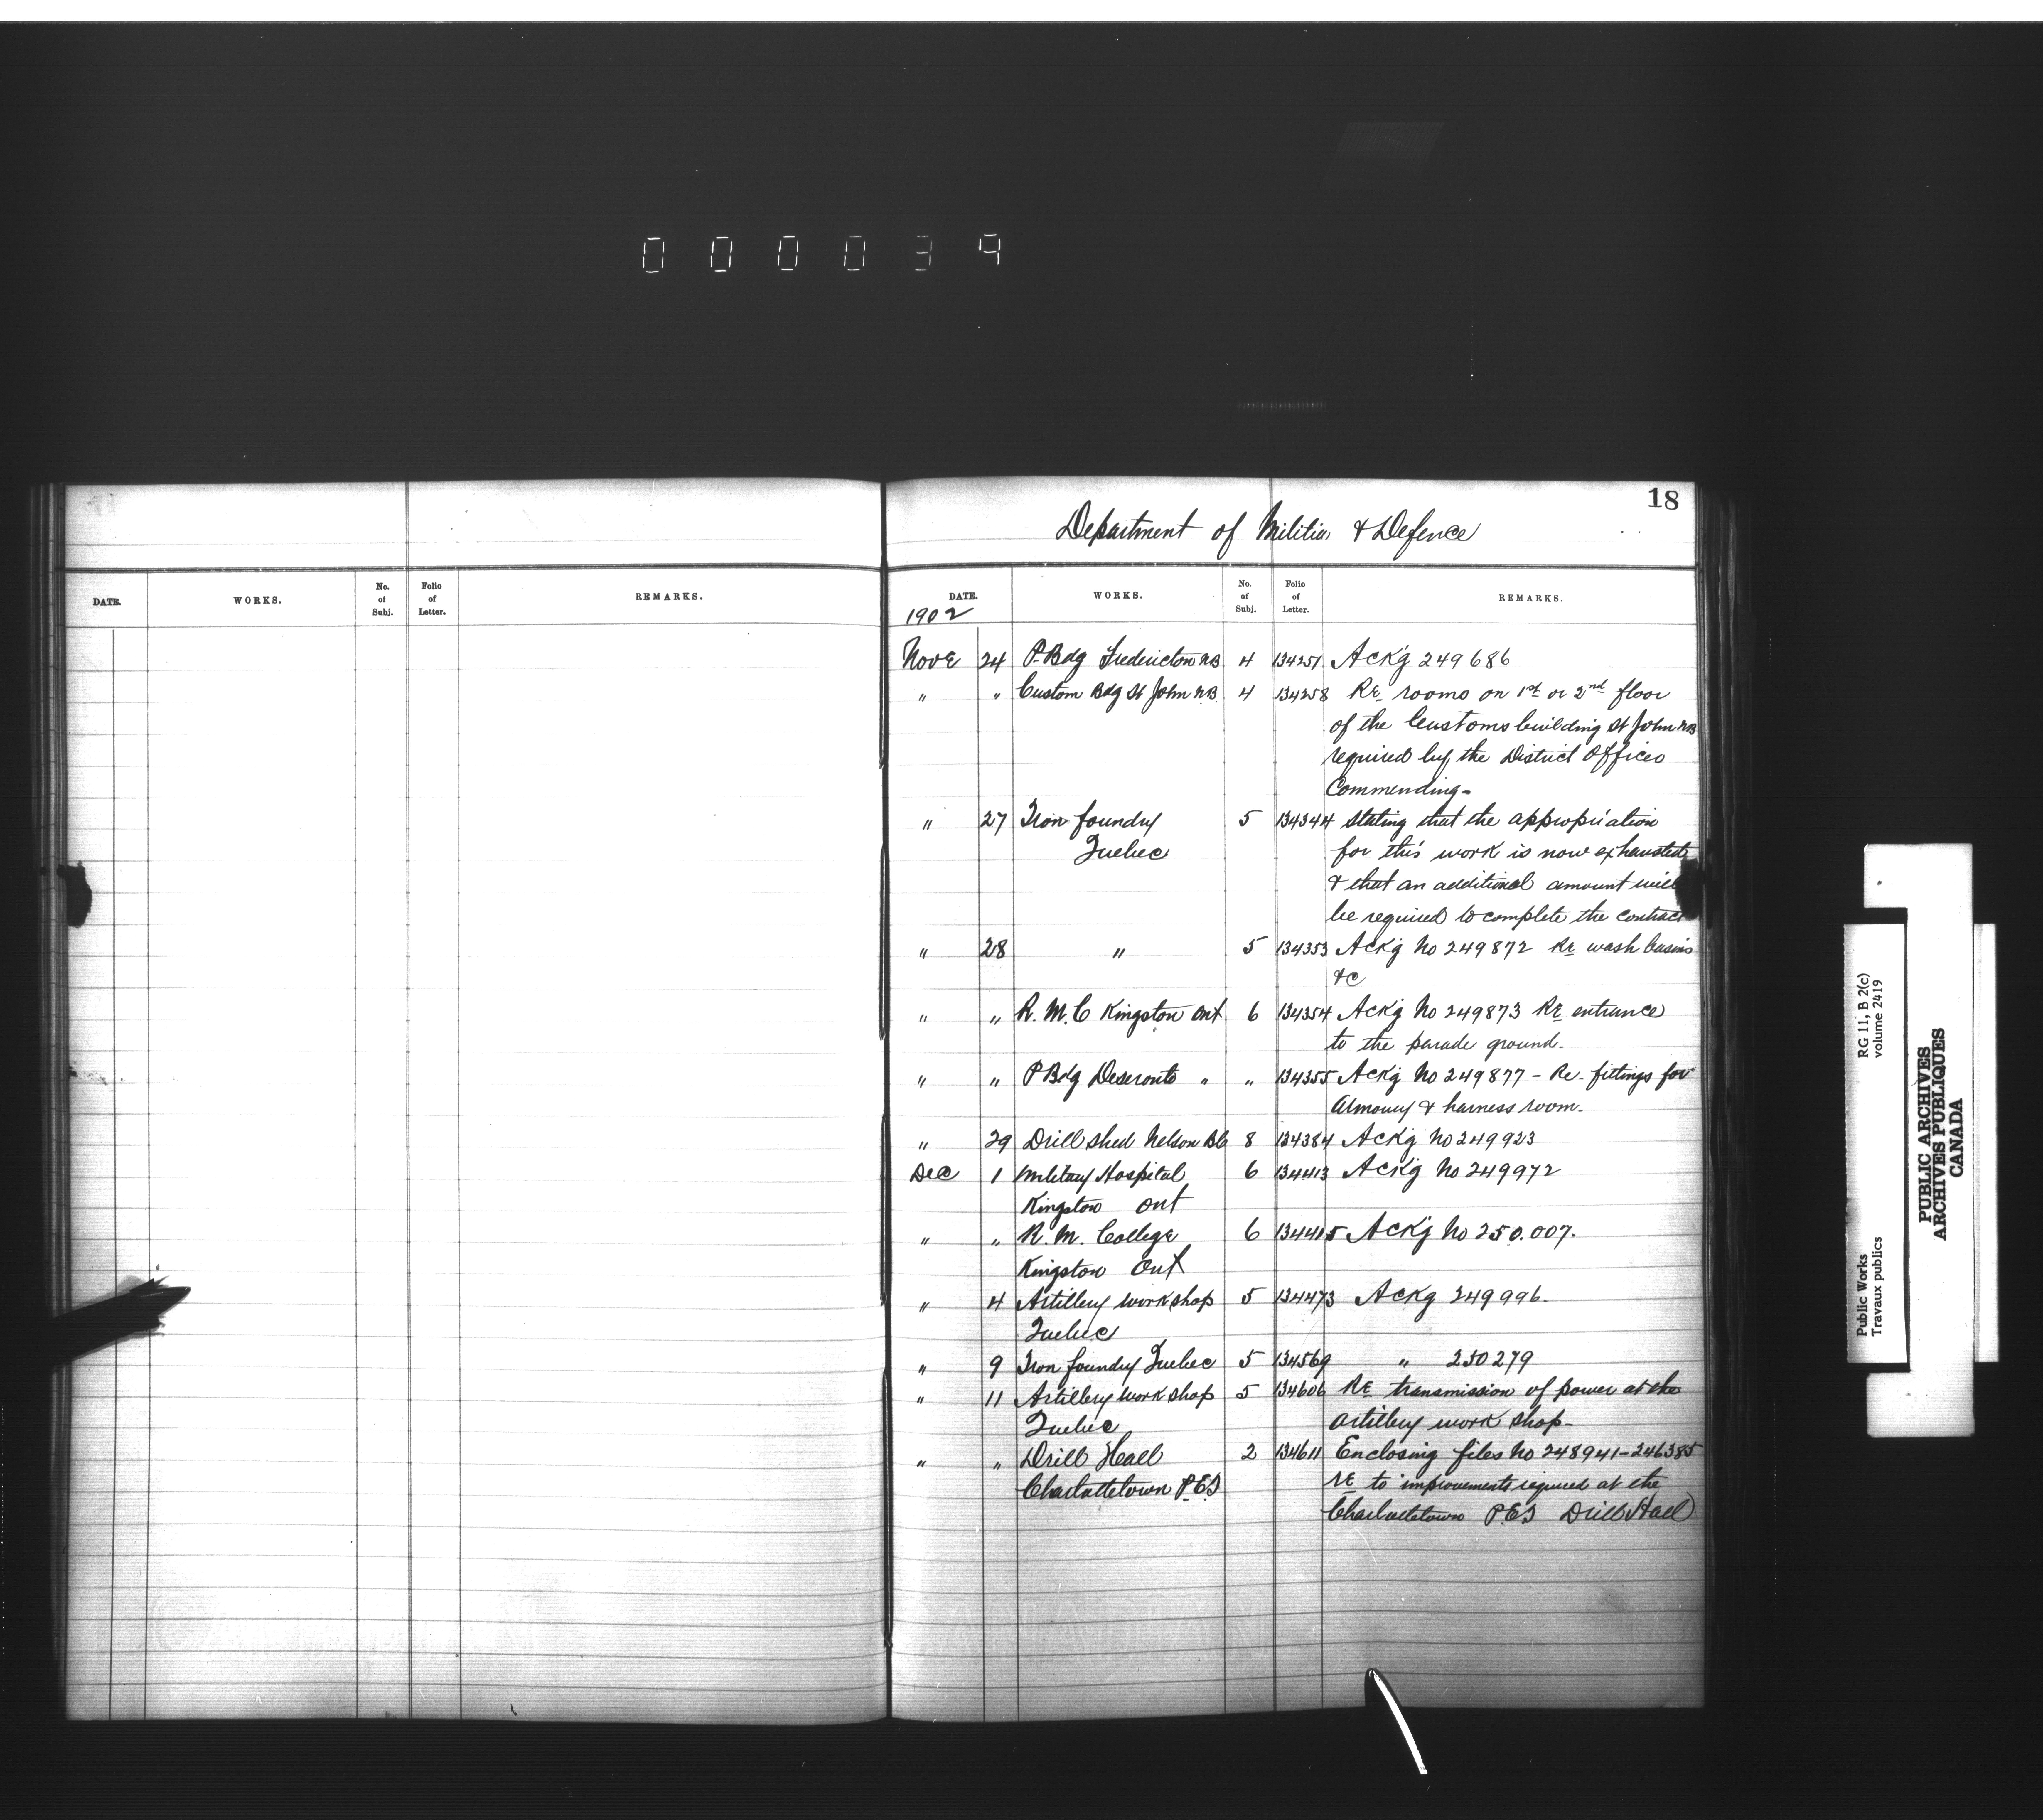 000039
18
Department of Militia & Defence
DATE. WORKS. No. of Subj. Folio of Letter. REMARKS.
DATE. WORKS. No. of Subj. Folio of Letter. REMARKS.
1902
Nove 24 P. Bdg Fredericton NB 4 134251 Ackg 249686
" " Custom Bdg St John NB. 4 134258 Re rooms on 1st or 2nd floor
of the Customs building St John NB
required by the District Officer
Commending-
" 27 Iron foundry 5 134344 stating that the appropriation
Quebec for this work is now exhausted
& that an additional amount will
be required to complete the contract
" 28 " 5 134353 Ackg No 249872 Re wash basins
&c
" " R. M. C Kingston Ont 6 134354 Ackg No 249873 Re entrance
to the parade ground.
" " P Bdg Deseronto " " 134355 Ackg No 249877 - Re fittings for
Almoury & harness room.
" 29 Drill shed Nelson BC 8 134384 Ackg No 249923
Dec 1 Military Hospital 6 134413 Ackg No 249972
Kingston Ont
" " R. M. College 6 134415 Ackg No 250.007.
Kingston Ont
" 4 Artillery work shop 5 134473 Ackg 249996.
Quebec
" 9 Iron foundry Quebec 5 134569 " 250279
" 11 Artillery work shop 5 134606 Re transmission of power at the
Quebec artillery work shop-
" " Drill Hall 2 134611 Enclosing files No 248941-246385
Charlottetown P.E.I re to improvements required at the
Charlottetown P.E.I Drill Hall
RG 11, B 2(c)
volume 2419
Public Works
Travaux publics
PUBLIC ARCHIVES
ARCHIVES PUBLIQUES
CANADA